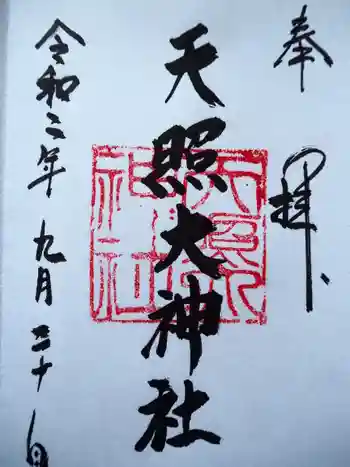 奉拝
天照大神社
令和二年九月三十日
天照大
神社